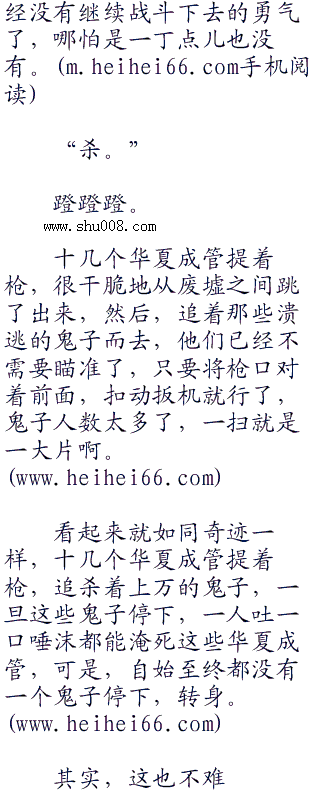 经没有继续战斗下去的勇气
了，哪怕是一丁点儿也没
有。(m.heihei66.com手机阅
读)
“杀。”
蹬蹬蹬。
www.shu008.com
十几个华夏成管提着
枪，很干脆地从废墟之间跳
了出来，然后，追着那些溃
逃的鬼子而去，他们已经不
需要瞄准了，只要将枪口对
着前面，扣动扳机就行了，
鬼子人数太多了，一扫就是
一大片啊。
(www.heihei66.com)
看起来就如同奇迹一
样，十几个华夏成管提着
枪，追杀着上万的鬼子，一
旦这些鬼子停下，一人吐一
口唾沫都能淹死这些华夏成
管，可是，自始至终都没有
一个鬼子停下，转身。
(www.heihei66.com)
其实，这也不难